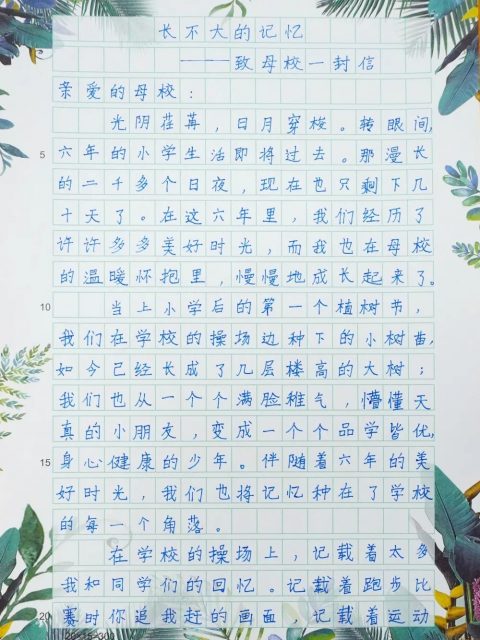 长不大的记忆
——致母校一封信
亲爱的母校：
光阴荏苒，日月穿梭。转眼间，
5 六年的小学生活即将过去。那漫长
的二千多个日夜，现在也只剩下几
十天了。在这六年里，我们经历了
许许多多美好时光，而我也在母校
的温暖怀抱里，慢慢地成长起来了。
10 当上小学后的第一个植树节，
我们在学校的操场边种下的小树苗，
如今已经长成了几层楼高的大树；
我们也从一个个满脸稚气，懵懂天
真的小朋友，变成一个个品学皆优，
15 身心健康的少年。伴随着六年的美
好时光，我们也将记忆种在了学校
的每一个角落。
在学校的操场上，记载着太多
我和同学们的回忆。记载着跑步比
20 赛时你追我赶的画面，记载着运动